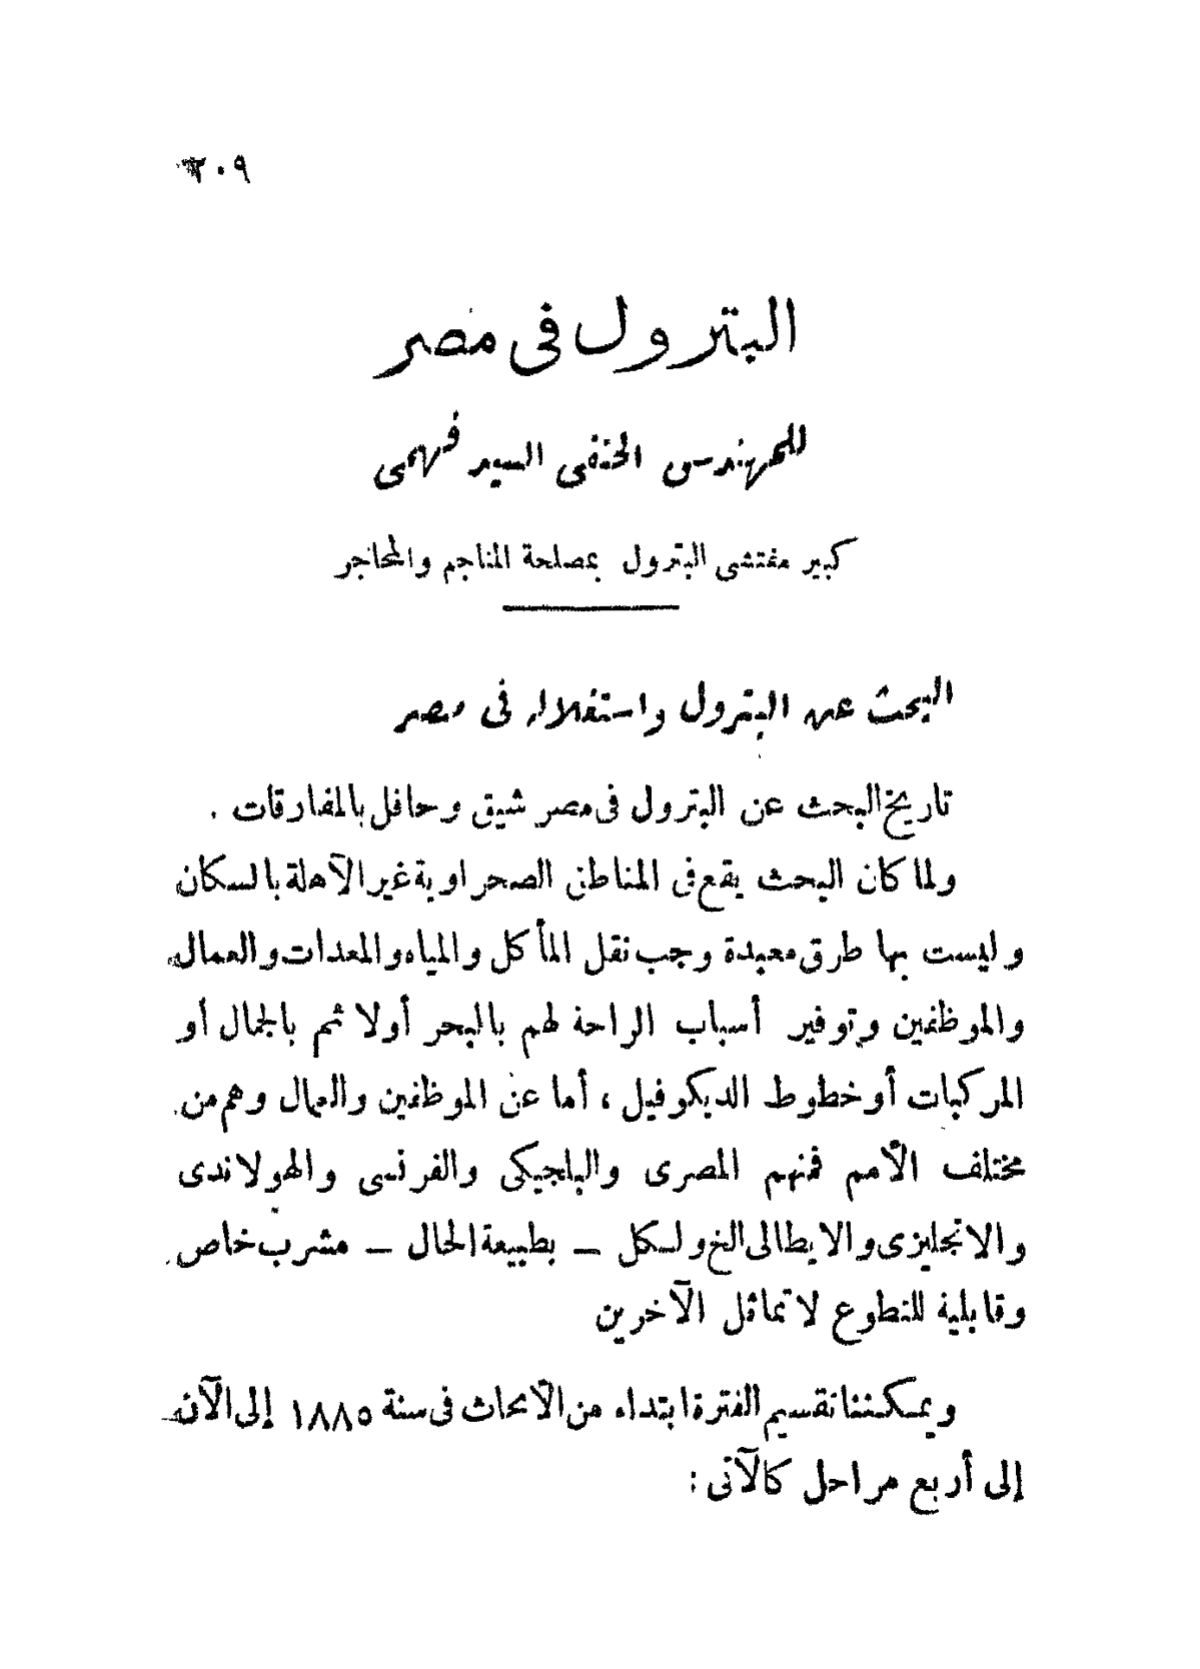 ٢٠٩
البترول فى مصر
للمهندس الحنفى السيد فهمى
كبير مفتشى البترول بمصلحة المناجم والمحاجر
البحث عن البترول واستغلاله فى مصر
تاريخ البحث عن البترول فى مصر شيق وحافل بالمفارقات .
ولما كان البحث يقع فى المناطق الصحراوية غير الآهلة بالسكان
وليست بها طرق معبدة وجب نقل المأكل والمياه والمعدات والعمال
والموظفين وتوفير أسباب الراحة لهم بالبحر أولا ثم بالجمال أو
المركبات أو خطوط الديكوفيل ، أما عن الموظفين والعمال وهم من
مختلف الأمم فمنهم المصرى والبلجيكى والفرنسى والهولاندى
والانجليزى والايطالى الخ ولكل – بطبيعة الحال – مشرب خاص
وقابلية للتطوع لا تماثل الآخرين
ويمكننا تقسيم الفترة ابتداء من الأبحاث فى سنة ١٨٨٥ إلى الآن
إلى أربع مراحل كالآتى :